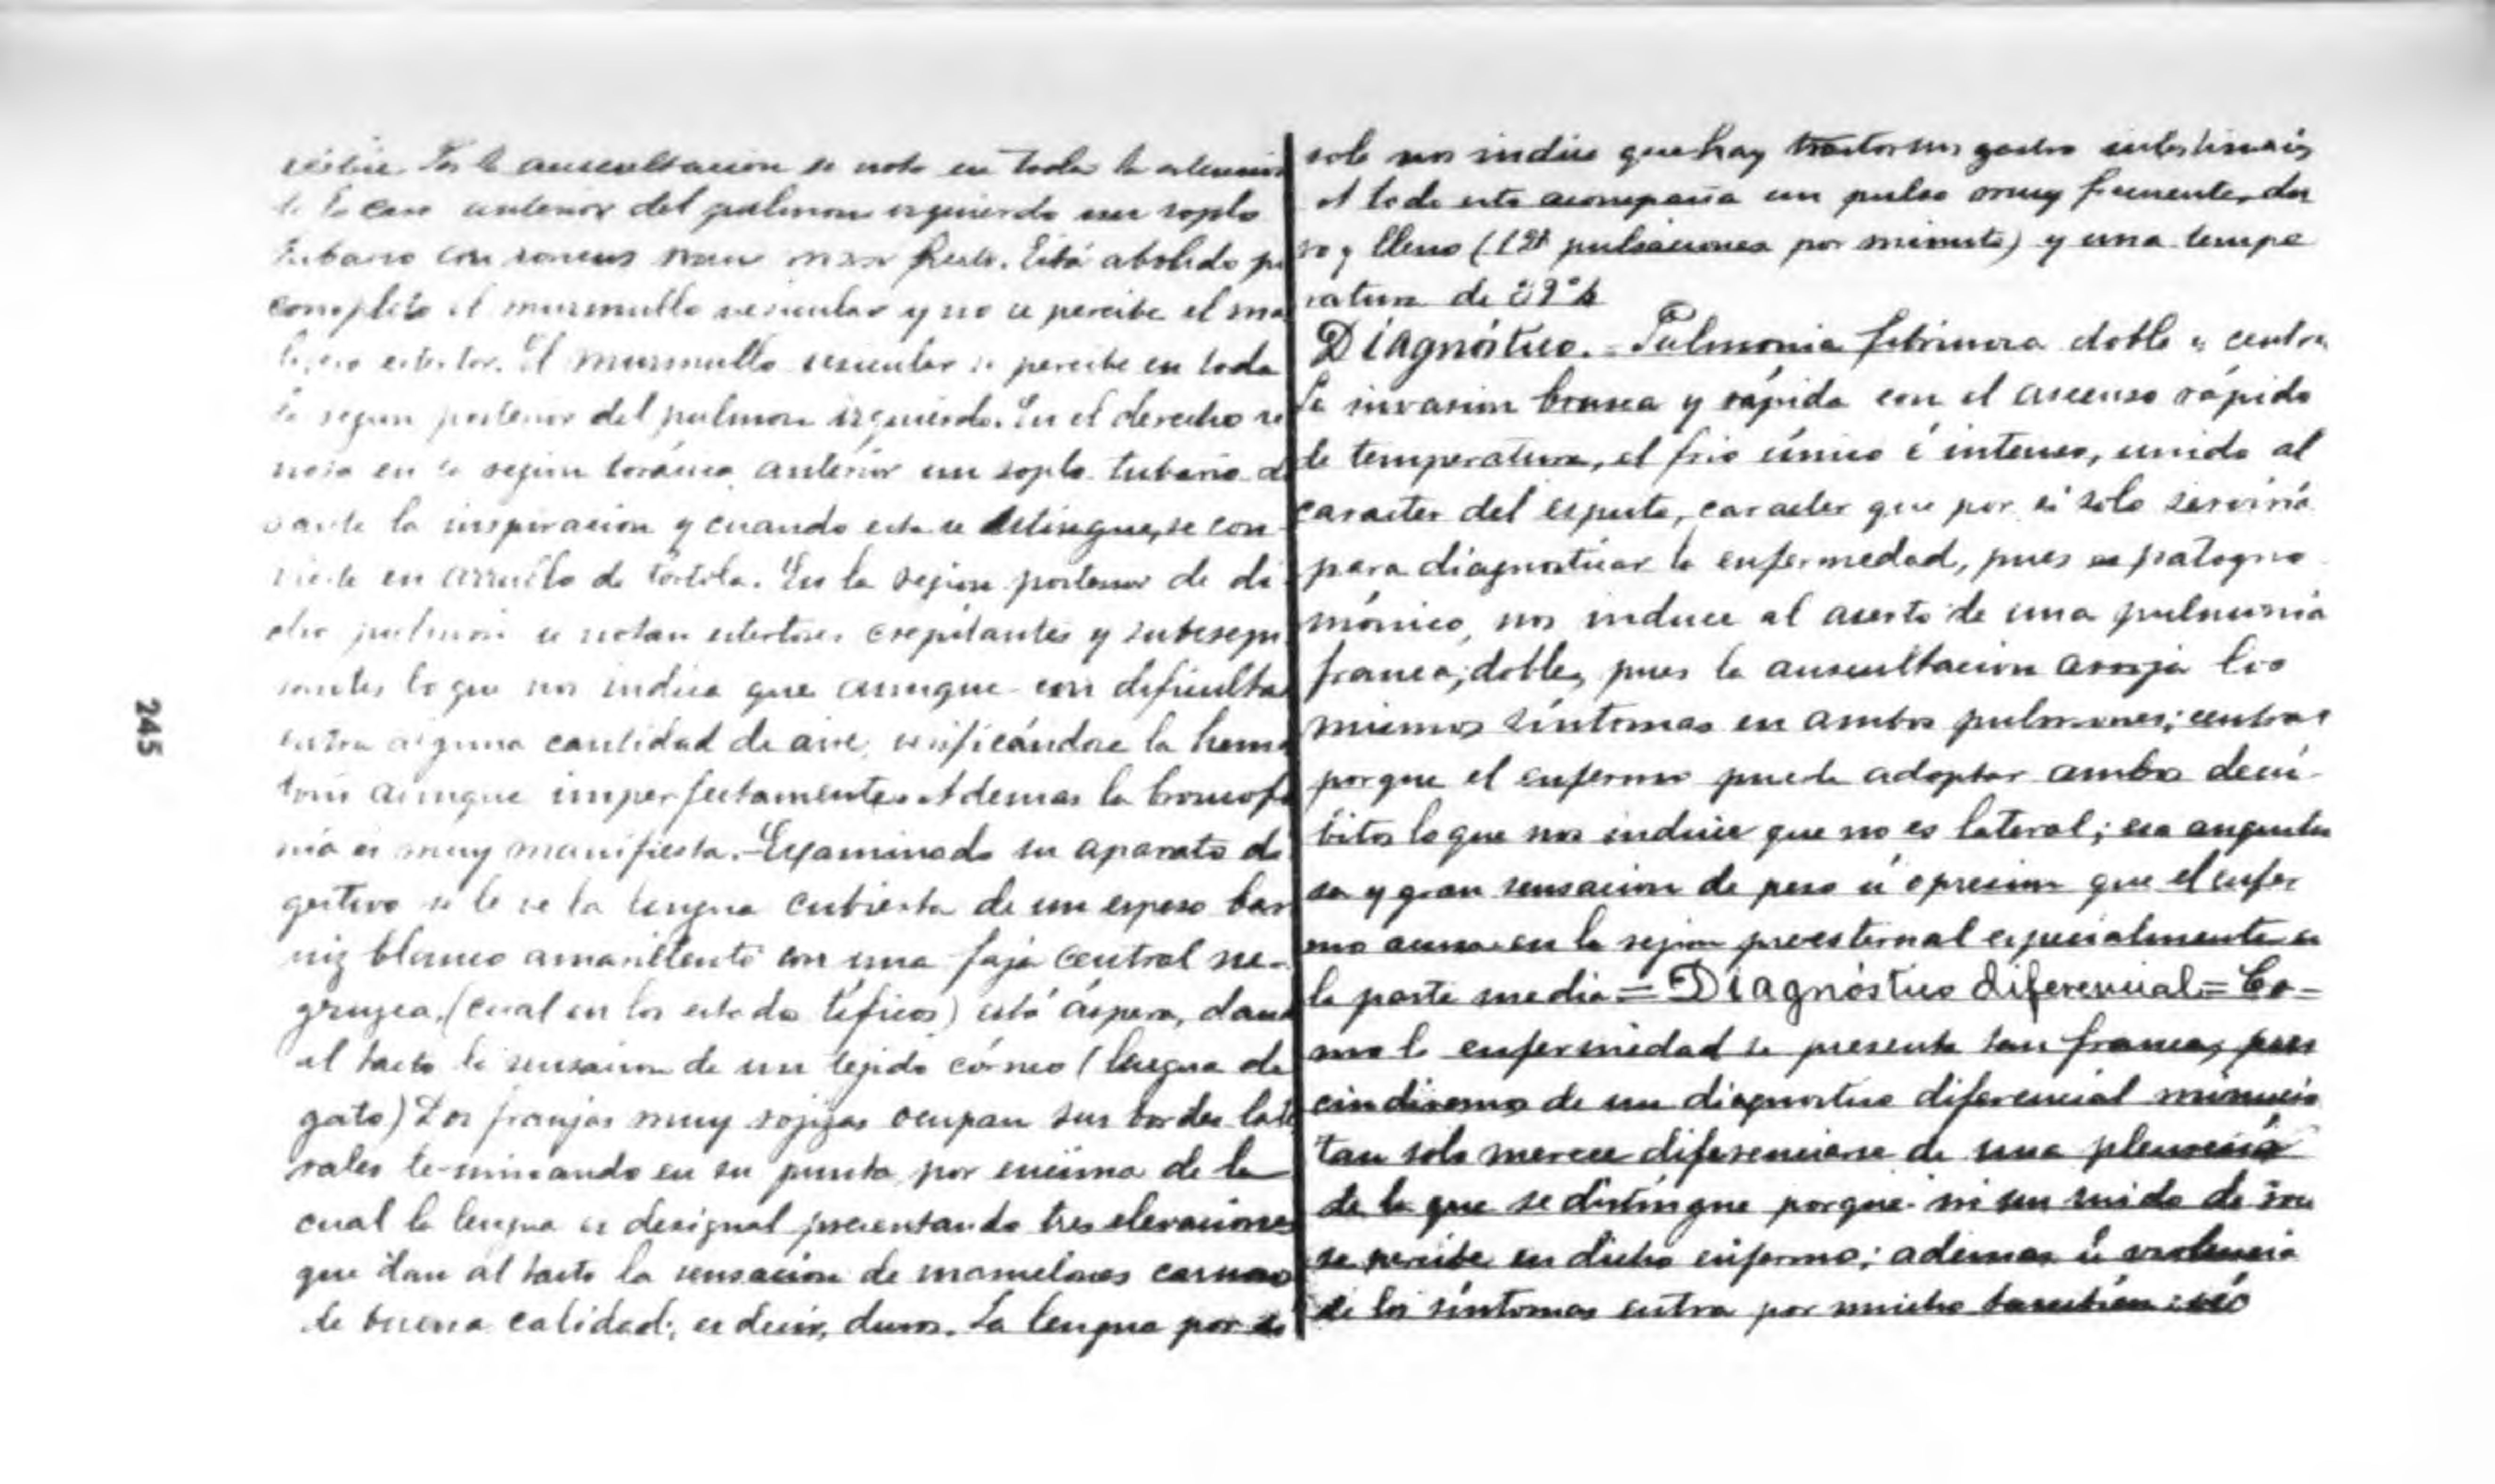 Por la auscultacion se nota en toda la estension
de la cara anterior del pulmon izquierdo un soplo
tubario con roncus Está abolido po
completo el murmullo vesicular y no se percibe el ma
ligero estertor. El murmullo vesicular se percibe en toda
la region posterior del pulmon izquierdo. En el derecho se
nota en la region torácica anterior un soplo tubario du
rante la inspiracion y cuando esta se estingue, se con-
vierte en arrullo de tórtola. En la region posterior de di
cho pulmon se notan estertores crepitantes y subcrepi
tantes lo que nos indica que aunque con dificultad
entra alguna cantidad de aire, verificándose la hema
tosis aunque imperfectamente. Ademas la broncofo
nia es muy manifiesta.- Examinado su aparato di
gestivo se le ve la lengua cubierta de un espeso bar
niz blanco amarillento con una faja central ne-
gruzca, (cual en los estados tíficos) está áspera, dando
al tacto la sensacion de un tejido córneo (lengua de
gato) Dos franjas muy rojizas ocupan sus bordes late
rales terminando en su punta por encima de la
cual la lengua es desigual presentando tres elevaciones
que dan al tacto la sensacion de mamelones carnosos
de buena calidad; es decir, duros. La lengua por si
solo nos indica que hay trastornos gastro intestinales
A todo esto acompaña un pulso muy frecuente, du
ro y lleno pulsaciones por minuto) y una tempe
ratura de
Diágnóstico.- Pulmonia fibrinosa doble y central
La invasion brusca y rápida con el ascenso rápido
de temperatura, el frio único é intenso, unido al
caracter del esputo, caracter que por si solo serviria
para diagnosticar la enfermedad, pues es patogno
mónico, nos induce al aserto de una pulmonia
franca; doble, pues la auscultacion arroja los
mismos síntomas en ambos pulmones; central
porque el enfermo puede adoptar ambos decú-
bitos lo que nos induce que no es lateral; esa angustio
sa y gran sensacion de peso ú opresion que el enfer
mo acusa en la region preesternal especialmente en
la parte media = Diágnóstico diferencial = Co-
mo la enfermedad se presenta tan franca, pres
cindiremos de un diagnostico diferencial minucio
tan solo merece diferenciarse de una pleuresia
de la que se distingue porque ni un ruido de roce
se percibe en dicho enfermo; ademas la violencia
de los síntomas entra por mucho tambien
245